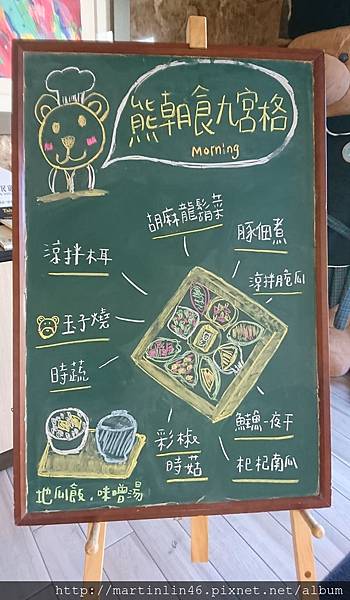 熊朝食九宮格
Morning
胡麻龍鬚菜
豚佃煮
涼拌木耳
涼拌脆瓜
玉子燒
時蔬
彩椒
時菇
鯖魚一夜干
枇杞南瓜
地瓜飯,味噌湯
http://martinlin46.pixnet.net/album